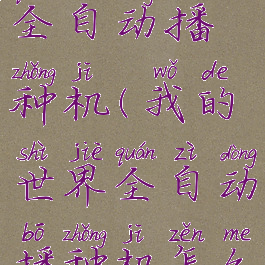 全自动播
zhǒng jī wǒ de
种机(我的
shì jiè quán zì dòng
世界全自动
bō zhǒng jī zěn me
播种机怎么